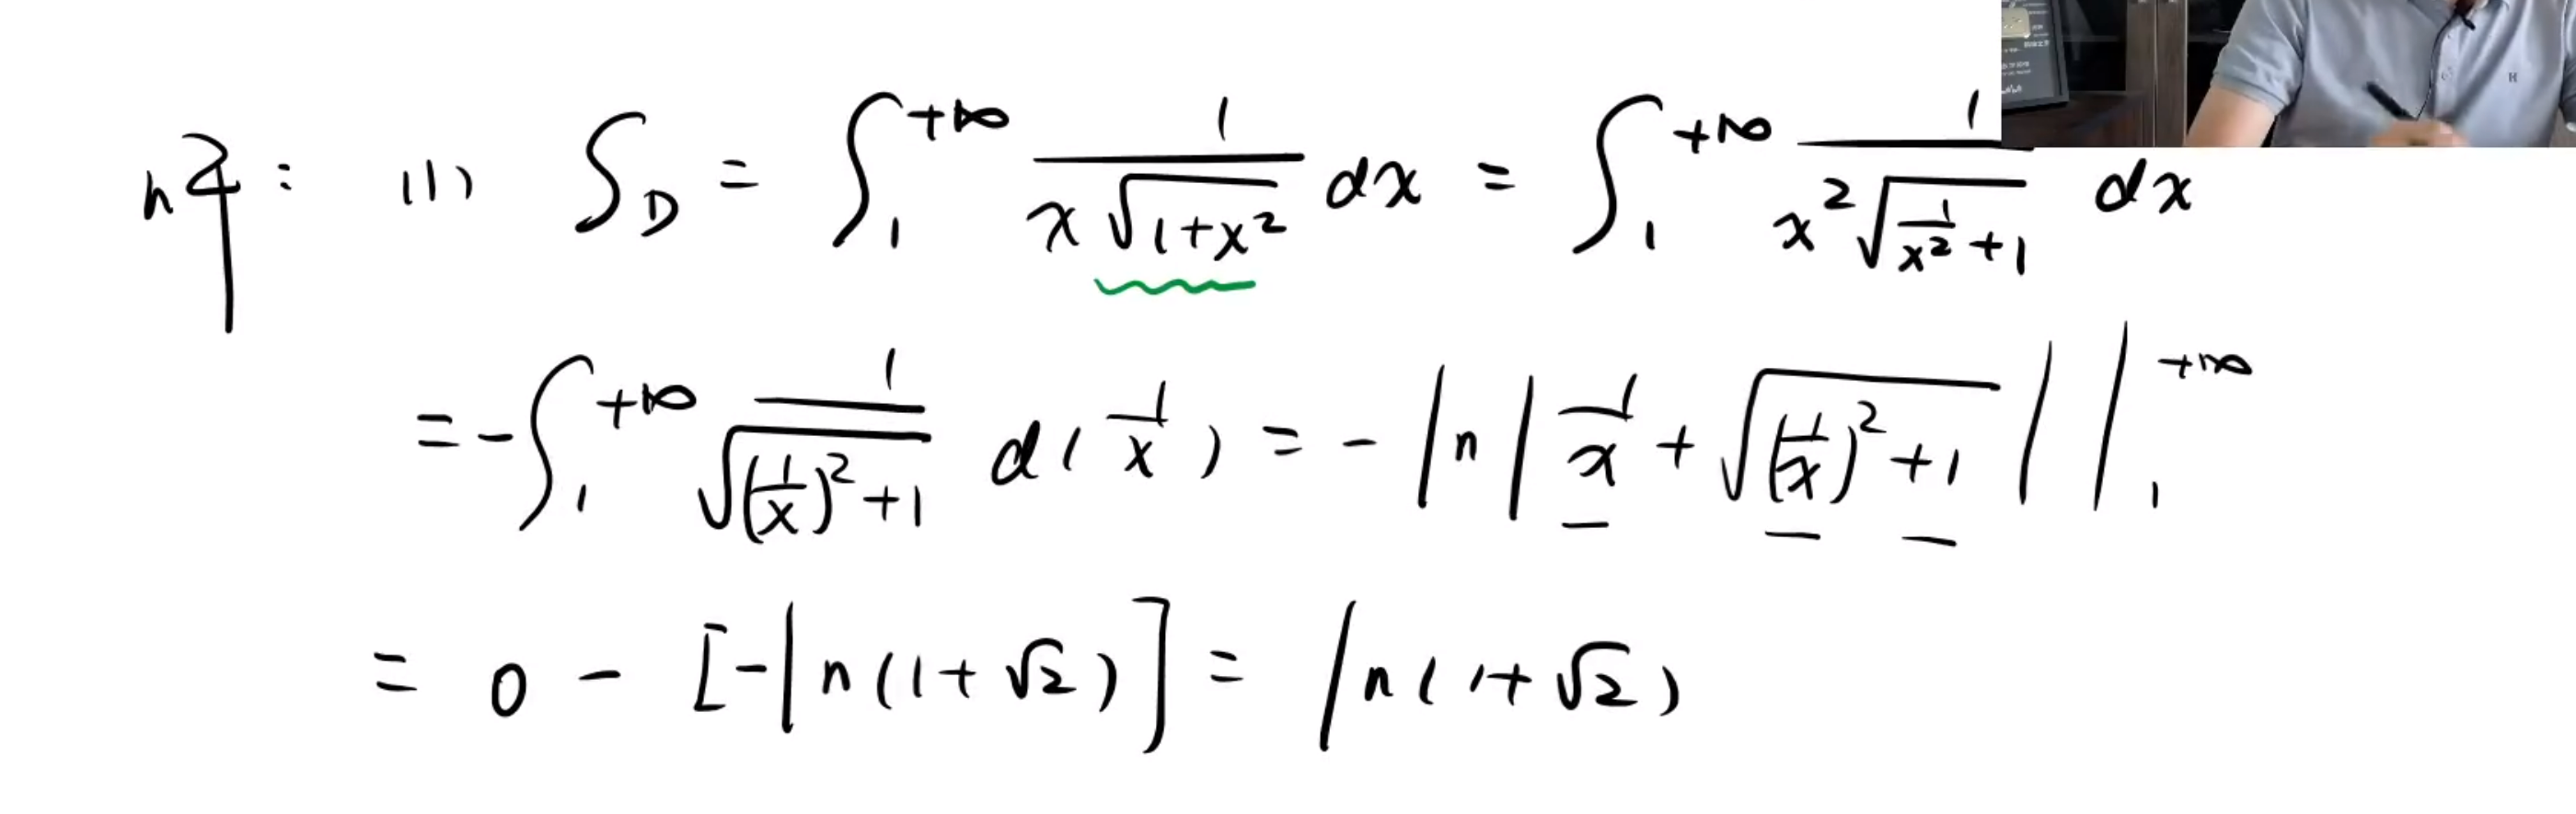 解: (1) S_D = ∫_1^{+∞} 1/(x√(1+x²)) dx = ∫_1^{+∞} 1/(x²√(1/x²+1)) dx
= -∫_1^{+∞} 1/√((1/x)²+1) d(1/x) = -ln|1/x + √((1/x)²+1)| |_1^{+∞}
= 0 - [-ln(1+√2)] = ln(1+√2)